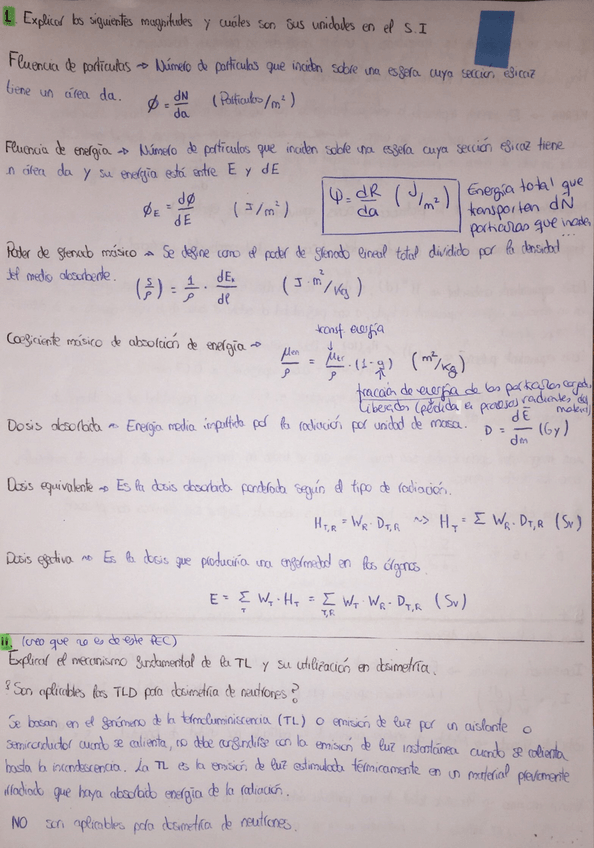 1. Explicar las siguientes magnitudes y cuáles son sus unidades en el S.I
Fluencia de partículas → Número de partículas que inciden sobre una esfera cuya sección eficaz
tiene un área da. Φ = dN/da (Partículas/m²)
Fluencia de energía → Número de partículas que inciden sobre una esfera cuya sección eficaz tiene
n área da y su energía está entre E y dE
Φ_E = dΦ/dE (J/m²)
Ψ = dR/da (J/m²)
Energía total que
transporten dN
partículas que inciden
Poder de frenado másico → Se define como el poder de frenado lineal total dividido por la densidad
del medio absorbente. (S/ρ) = 1/ρ · dE/dl (J·m²/Kg)
transf. energía
Coeficiente másico de absorción de energía → μen/ρ = μtr/ρ · (1-g) (m²/Kg)
fracción de energía de las partículas cargadas
liberadas (pérdida en procesos radiantes del material)
Dosis absorbada → Energía media impartida por la radiación por unidad de masa. D = dĒ/dm (Gy)
Dosis equivalente → Es la dosis absorbada ponderada según el tipo de radiación.
H_T,R = W_R · D_T,R ~> H_T = Σ W_R · D_T,R (Sv)
Dosis efectiva → Es la dosis que produciría una enfermedad en los órganos
E = Σ_T W_T · H_T = Σ_T,R W_T · W_R · D_T,R (Sv)
ii. (creo que no es de este PEC)
Explicar el mecanismo fundamental de la TL y su utilización en dosimetría.
¿Son aplicables los TLD para dosimetría de neutrones?
Se basan en el fenómeno de la termoluminiscencia (TL) o emisión de luz por un aislante o
semiconductor cuando se calienta, no debe confundirse con la emisión de luz instantánea cuando se calienta
hasta la incandescencia. La TL es la emisión de luz estimulada térmicamente en un material previamente
irradiado que haya absorbido energía de la radiación.
NO son aplicables para dosimetría de neutrones.